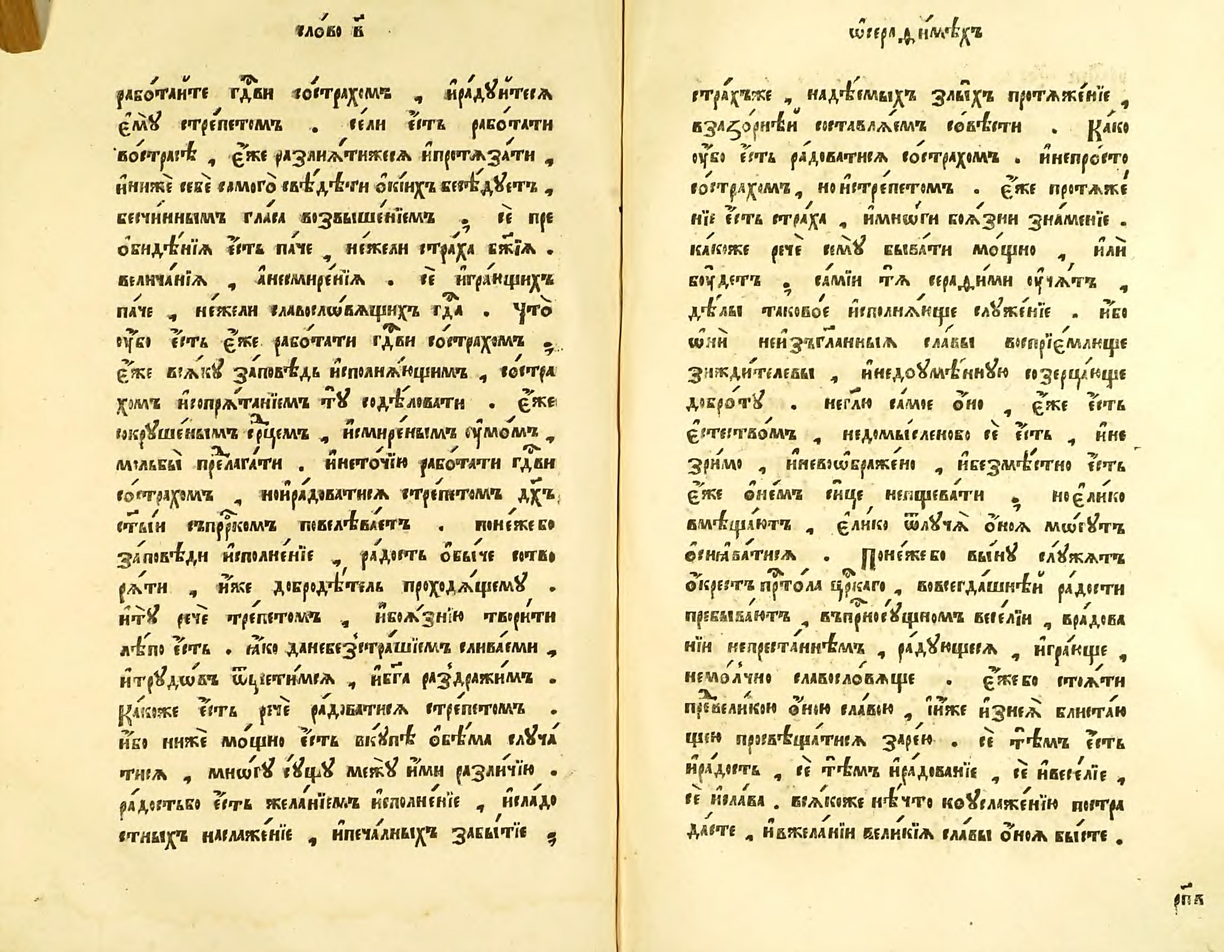 сло́во в҃
рабо́тайте гдⷭ҇ви состра́хомъ , и҆ра́дꙋйтесѧ
є҆мꙋ̀ стре́петомъ . се́ли є҆́сть рабо́тати
востра́сѣ , є҆́же разлиѧ́тижесѧ и҆протѧза́ти ,
и҆нижѐ себѐ самого̀ свѣ́дѣти ѻ҆си́хъ бесѣ́дꙋетъ ,
бесчи́ннымъ гла́са возвыше́нїемъ ; сѐ пре
ѻ҆би́дѣнїѧ є҆́сть па́че , не́жели стра́ха бж҃їѧ .
велича́нїѧ , а҆несмире́нїѧ . сѐ и҆гра́ющихъ
па́че , не́жели славосло́вѧщихъ гдⷭ҇а . Что̀
ᲂу҆́бо є҆́сть є҆́же рабо́тати гдⷭ҇ви состра́хомъ ;
є҆́же всѧ́кꙋ за́повѣдь и҆сполнѧ́ющимъ , состра́
хомъ и҆сопрѧ́танїемъ тꙋ̀ содѣ́ловати . є҆́же
сокрꙋше́нымъ срⷣцемъ , и҆смире́нымъ ᲂу҆мо́мъ ,
мольбы̀ прⷣелага́ти . и҆несто́чїю рабо́тати гдⷭ҇ви
состра́хомъ , нои҆ра́доватисѧ стре́петомъ дх҃ъ
ст҃ы́и съпрⷪ҇ро́комъ повелѣва́етъ . поне́жебо
за́повѣди и҆сполне́нїе , ра́дость ѻ҆бы́че сотво
рѧ́ти , и҆́же добродѣ́тель проходѧ́щемꙋ .
и҆тꙋ̀ речѐ тре́петомъ , и҆боѧ́знїю твори́ти
лѣ́по є҆́сть . ꙗ҆́ко данебез̾стра́шїемъ слива́еми ,
и҆трꙋдо́въ ѿщети́мсѧ , и҆бг҃а раз̾дражи́мъ .
Ка́коже є҆́сть речѐ ра́доватисѧ стре́петомъ .
и҆́бо нижѐ мо́щно є҆́сть вкꙋ́пѣ ѻ҆бѣ́ма слꙋча́
тисѧ , мно́гꙋ сꙋ́щꙋ межꙋ̀ и҆́ми разли́чїю .
ра́достьбо є҆́сть жела́нїемъ и҆сполне́нїе , и҆сла́до
стныхъ наслажє́нїе , и҆печа́лныхъ забы́тїе ;
ѡ҆серафи́мѣхъ
стра́хъже , надѣ́емыхъ злы́хъ протѧже́нїе ,
взазо́рнѣй составлѧ́емъ со́вѣсти . Ка́ко
ᲂу҆́бо є҆́сть ра́доватисѧ состра́хомъ . и҆непро́сто
состра́хомъ , нои҆стре́петомъ . є҆́же протѧже́
нїе є҆́сть стра́ха , и҆мно́ги боѧ́зни зна́менїе .
ка́коже речѐ семꙋ̀ быва́ти мо́щно , и҆лѝ
бꙋ́детъ ; са́мїи тѧ̀ серафи́ми ᲂу҆ча́тъ ,
дѣ́лы таково́е и҆сполнѧ́юще слꙋже́нїе . и҆́бо
ѻ҆нѝ неи҆зъгла́нныѧ сла́вы воспрїе́млюще
зижди́телевы , и҆недоꙋмѣ́ннꙋю созерца́юще
добро́тꙋ . негл҃ю са́мое ѻ҆́но , є҆́же є҆́сть
є҆стество́мъ , недомы́сленобо сѐ є҆́сть , и҆не
зри́мо , и҆невоѻбраже́но , и҆безмѣ́стно є҆́сть
є҆́же ѻ҆не́мъ си́це непщева́ти ; ное҆ли́ко
вмѣща́ютъ , є҆ли́ко ѿлꙋча̀ ѻ҆́ноѧ мо́гꙋтъ
ѻ҆сиѧва́тисѧ . Поне́жебо вы́нꙋ слꙋ́жѧтъ
ѻ҆́крестъ прⷭ҇то́ла цр҃каго , вовсегда́шнѣй ра́дости
пребыва́ютъ , въприсносꙋ́щномъ весе́лїи , вра́дова
нїи непреста́ннѣмъ , ра́дꙋющесѧ , и҆гра́юще ,
немо́лчно славосло́вѧще . є҆́жебо стоѧ́ти
прⷣевели́кою ѻ҆́ною сла́вою , и҆́иже и҆знеѧ̀ блиста́ю
щею просвѣща́тисѧ заре́ю . сѐ тѣ́мъ є҆́сть
и҆ра́дость , сѐ тѣ́мъ и҆ра́дованїе , сѐ и҆весе́лїе ,
сѐ и҆сла́ва . всѧ́коже нѣ́что коꙋслажє́нїю постра
да́сте , и҆вжела́нїи вели́кїѧ сла́вы ѻ҆́ноѧ бы́сте .
рп҃в